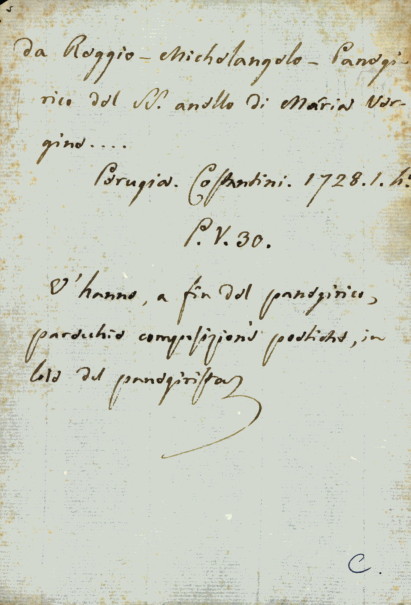 da Reggio - Michelangelo - Panegi-
rico del SS. anello di Maria Ver-
gine....
Perugia. Costantini. 1728. 1. h.
P. V. 30.
V'hanno, a fin del panegirico,
parecchie composizioni poetiche, in
lode del panegirista
C.